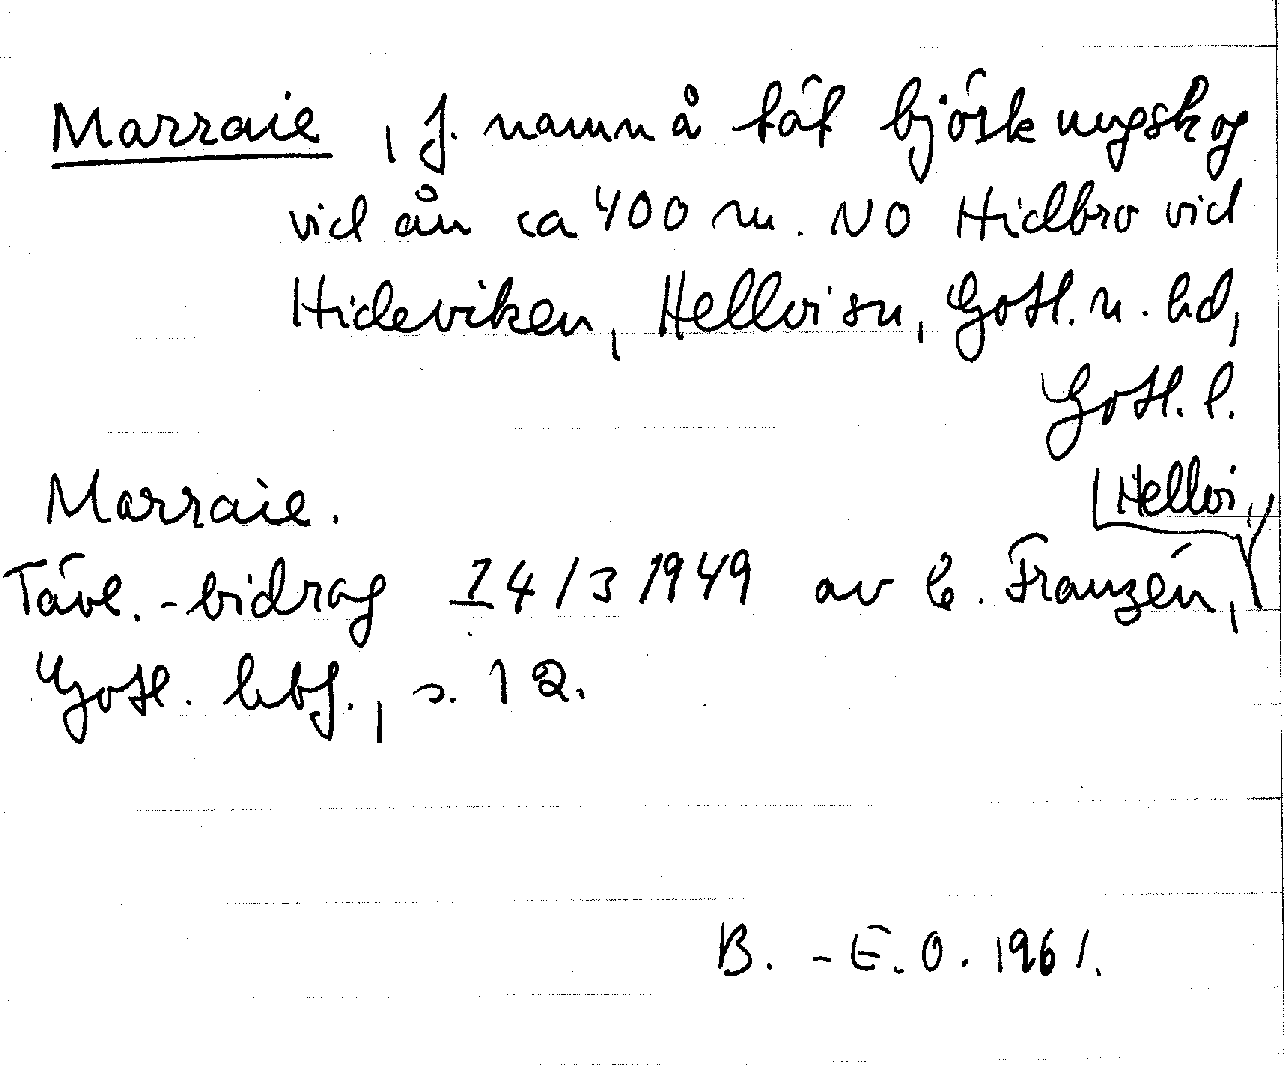 Marraie, f. namn å tät björkungskog
vid ån ca 400 m. NO Hidbro vid
Hideviken, Hellvi sn, Gotl. n. hd,
Gotl. l.
Hellvi
Marraie.
Tävl.-bidrag 14/3 1949 av C. Franzén,
Gotl. hbf., s. 12.
B.-E.O. 1961.